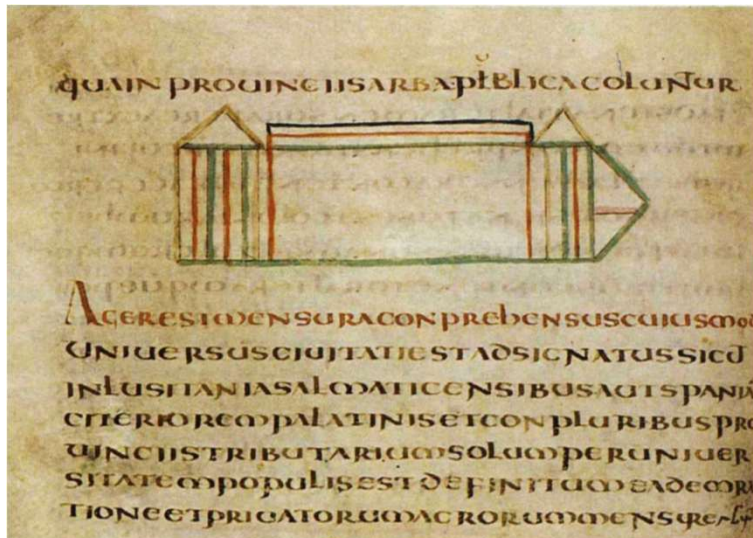 qua in prouinciis arba publica coluntur
Ager est mensura conprehensus cuius mod
uniuersus ciuitati est adsignatus sicut
in lusitania salmaticensibus aut spania
citeriorem palatinis et conpluribus pro
uinciis tributarium solum per uniuer
sitatem populis est definitum eadem ra
tione et priuatorum acrorum mens